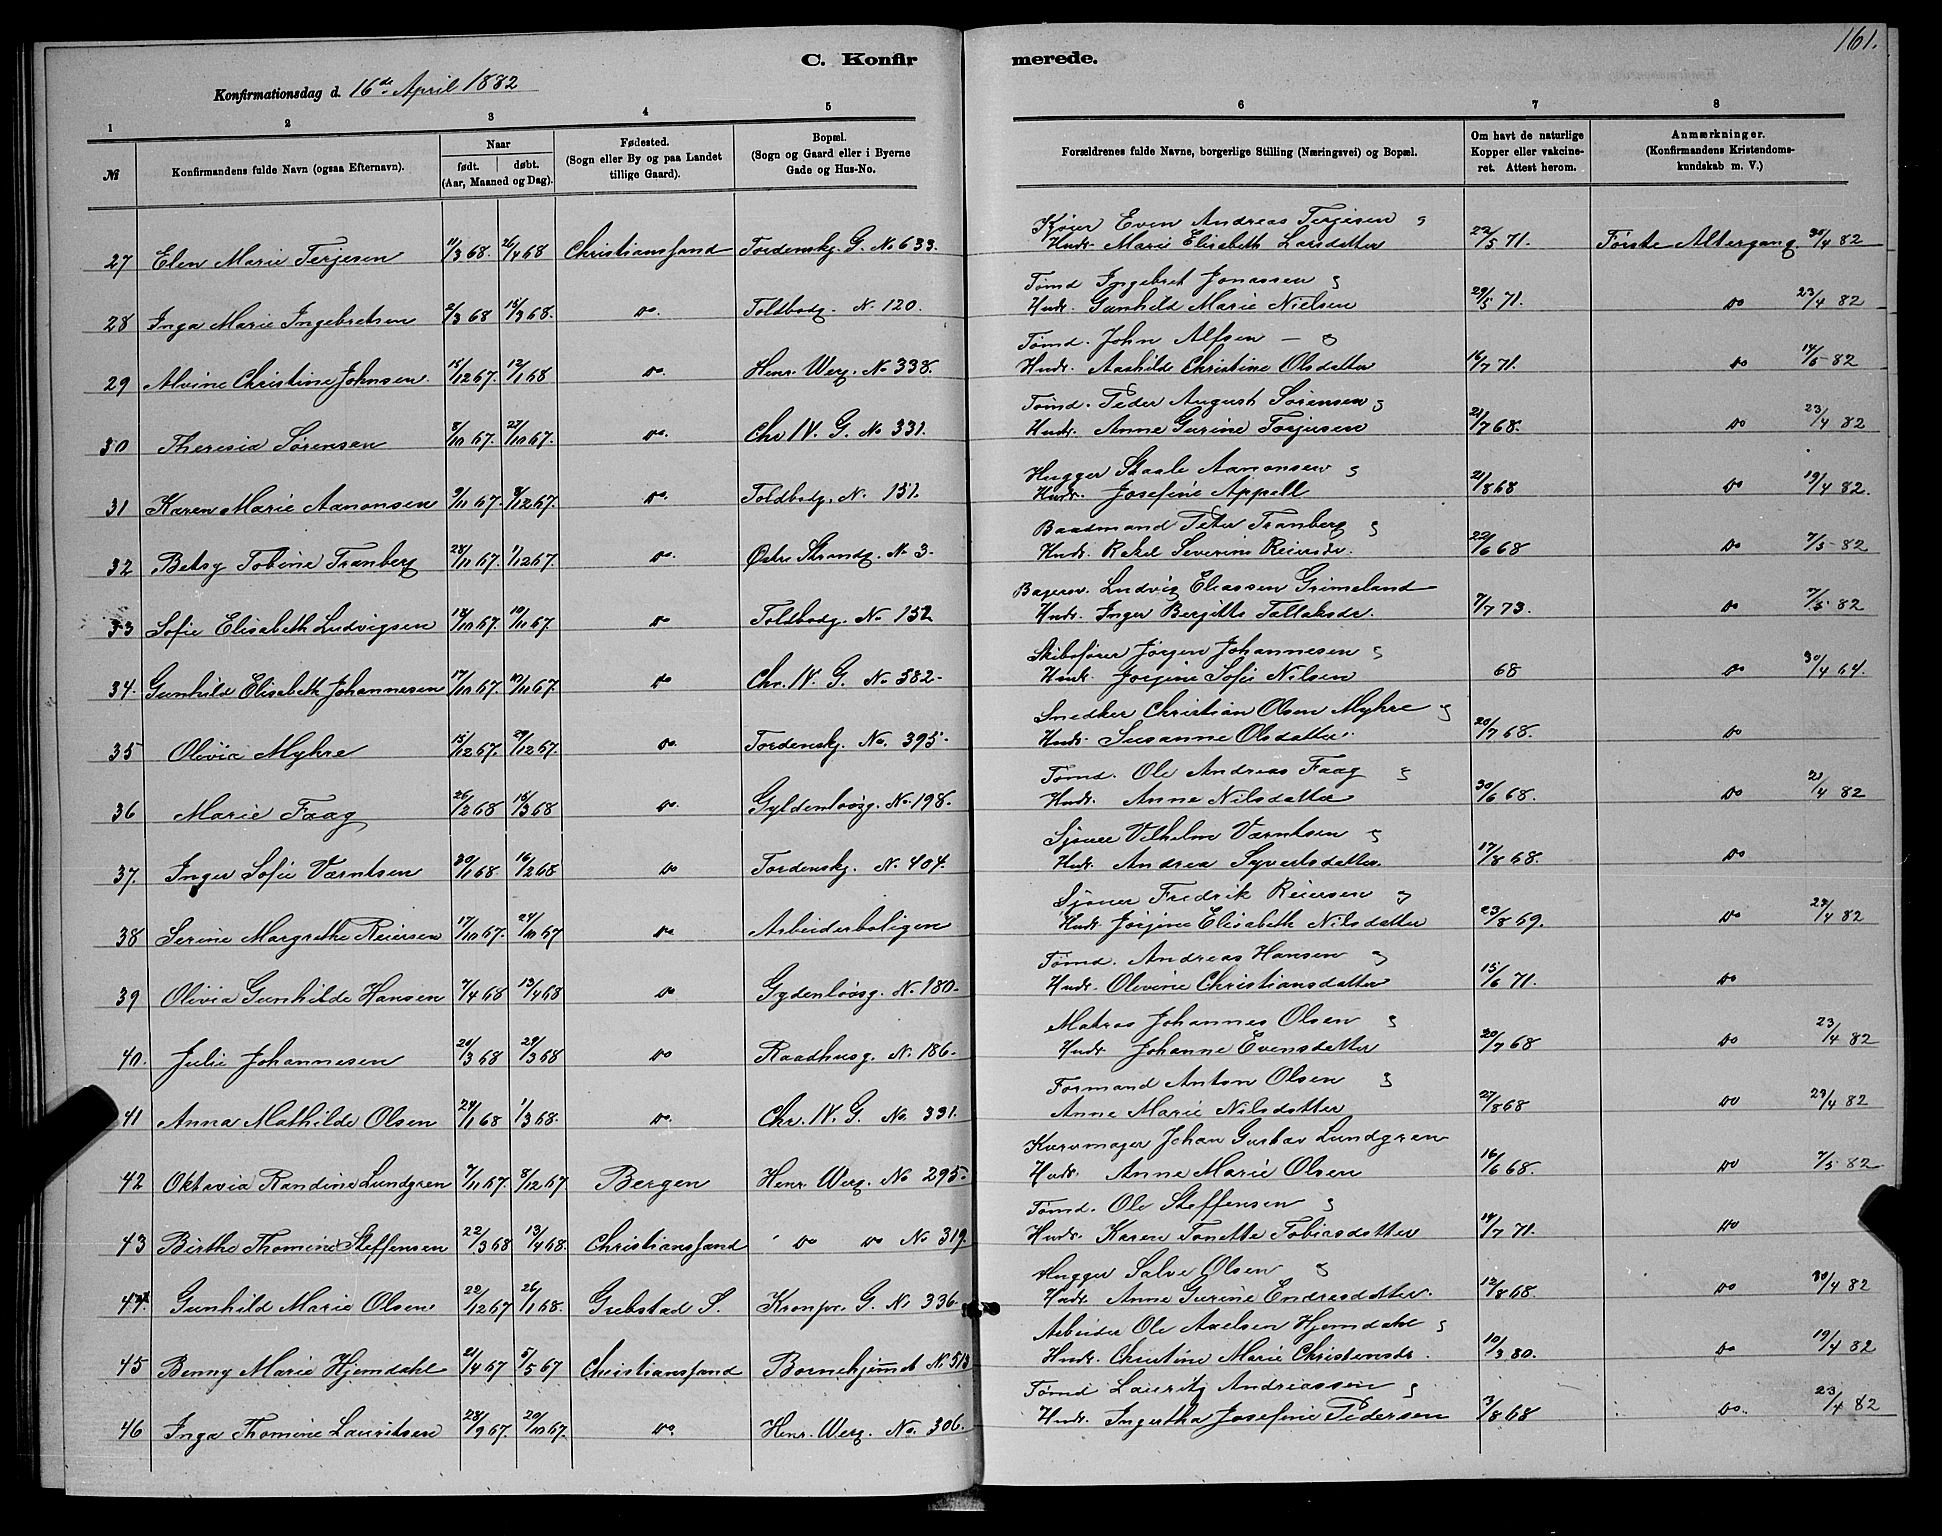 161.
C. Konfirmerede.
Konfirmationsdag d. 16de April 1882
1 2 3 4 5 6 7 8
№
Konfirmandens fulde Navn (ogsaa Efternavn).
Naar
født. døbt.
(Aar, Maaned og Dag).
Fødested.
(Sogn eller By og paa Landet
tillige Gaard).
Bopæl.
(Sogn og Gaard eller i Byerne
Gade og Hus-No.
Forældrenes fulde Navne, borgerlige Stilling (Næringsvei) og Bopæl.
Om havt de naturlige
Kopper eller vakcine-
ret. Attest herom.
Anmærkninger.
(Konfirmandens Kristendoms-
kundskab m. V.)
Kjører Even Andreas Terjesen og
27 Elen Marie Terjesen 11/3 68. 26/4 68 Christianssand Tordenskj. G. No 633. Hustr. Marie Elisabeth Larsdatter 22/5 71. Første Altergang 30/4 82
Tømd Ingebret Jonassen og
28 Inga Marie Ingebretsen 2/3 68 15/3 68. do. Toldbodg. No 120. Hustr. Gunhild Marie Nielsen 22/5 71. do 23/4 82
Tømd. John Alfsen – og
29 Alvine Christine Johnsen. 15/12 67. 12/1 68 do. Henr. Werg. No 338. Hustr. Aashilde Christine Olsdatter 16/7 71. do 14/5 82
Tømd. Peder August Sørensen og
30 Theresia Sørensen 8/10 67. 27/10 67. do. Chr. IV. G. No 331. Hustr. Anne Gurine Torjusen 21/7 68. do 23/4 82
Hugger Staale Aanonsen og
31 Karen Marie Aanonsen 9/11 67. 8/12 67. do. Toldbodg. No. 151. Hustr. Josefine Appell 21/8 68 do 19/4 82.
Baadmand Peter Tranberg og
32 Betsy Tobine Tranberg 28/11 67. 1/12 67. do. Østre Strandg. No 3. Hustr. Rakel Severine Reiersdr. 22/6 68 do 7/5 82
Bagersv. Ludvig Eliassen Grimeland
33 Sofie Elisabeth Ludvigsen 18/10 67. 10/11 67. do Toldbodg. No 152 Hustr. Inger Bergitte Tallaksdr. 7/7 73. do 7/5 82
Skibsfører Jørgen Johannesen og
34. Gunhild Elisabeth Johannesen 17/10 67. 10/11 67. do Chr. IV. G. No 382. Hustr. Jørgine Sofie Nilsen 68 do 30/4 64.
Snedker Christian Olsen Myhre og
35 Olivia Myhre 15/12 67. 29/12 67. do Tordenskj. No. 395. Hustr. Susanne Olsdatter. 20/7 68. do
Tømd. Ole Andreas Faag og
36 Marie Faag 26/2 68 15/3 68 do. Gyldenløvsg. No. 198. Hustr. Anne Nilsdatter 30/6 68. do 21/4 82
Sjømd Vilhelm Værntsen og
37. Inger Sofie Værntsen 30/1 68 16/2 68 do Tordenskj. No. 404. Hustr. Andrea Syvertsdatter 17/8 68. do
Sjømd Fredrik Reiersen og
38 Serine Margrethe Reiersen 17/10 67. 27/10 67 do Arbeiderboligen Hustr. Jørgine Elisabeth Nilsdatter 23/8 69. do 22/4 82
Tømd. Andreas Hansen og
39 Olivia Gunhilde Hansen 7/4 68 13/4 68 do Gydenløvsg. No. 180. Hustr. Olivine Christiansdatter 15/6 71. do
Matros Johannes Olsen og
40. Julie Johannesen 20/3 68 29/3 68 do Raadhusg. No. 186. Hustr. Johanne Evensdatter 20/7 68 do 23/4 82
Formand Anton Olsen og
41 Anna Mathilde Olsen 24/1 68 1/3 68. do. Chr. IV. G. No. 331. Anne Marie Nilsdatter 27/8 68 do 23/4 82
Kurvmager Johan Gustav Lundgren
42 Oktavia Randine Lundgren 7/11 67. 8/12 67 Bergen Henr. Werg. No 295. Hustr. Anne Marie Olsen 16/6 68. do 7/5 82
Tømd. Ole Steffensen og
43 Birthe Thomine Steffensen 22/3 68 13/4 68. Christianssand do do No 319. Hustr. Karen Tonette Tobiasdatter 14/7 71. do
Hugger Salve Olsen og
44. Gunhild Marie Olsen 22/12 67 26/1 68. Gubstad S. Kronpr. G. No 336. Hustr. Anne Gurine Endresdatter. 12/8 68. do 30/4 82
Arbeider Ole Axelsen Hjemdahl og
45 Benny Marie Hjemdahl 21/4 67 5/5 67 Christianssand Børnehjemmet No 513 Hustr. Christine Marie Christensdr. 10/3 80. do 19/4 82
Tømd Lauritz Andreassen og
46 Inga Thomine Lauritsen 28/9 67. 20/10 67. do. Henr. Werg. No. 306. Hustr. Ingertha Josefine Pedersen 3/8 68 do. 23/4 82